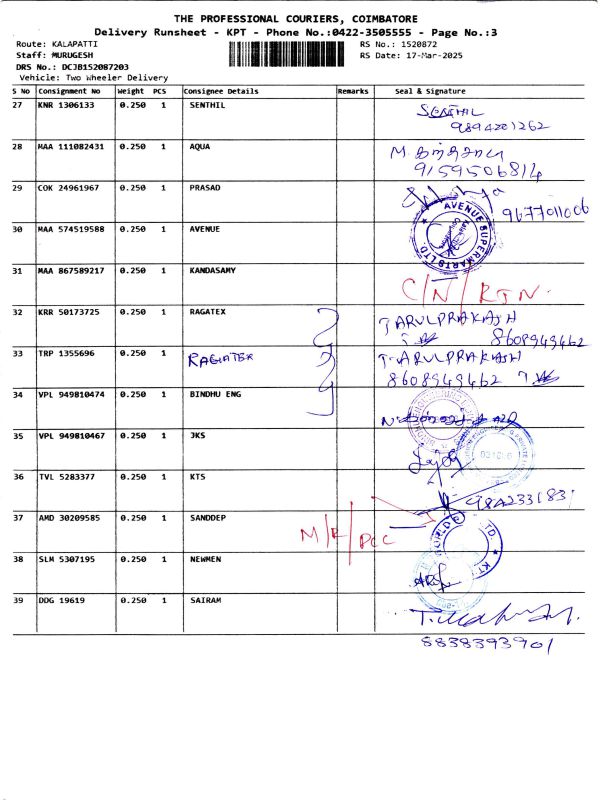 THE PROFESSIONAL COURIERS, COIMBATORE
Delivery Runsheet - KPT - Phone No.:0422-3505555 - Page No.:3
Route: KALAPATTI
Staff: MURUGESH
DRS No.: DCJB152087203
Vehicle: Two Wheeler Delivery
RS No.: 1520872
RS Date: 17-Mar-2025
S No Consignment No Weight PCS Consignee Details Remarks Seal & Signature
27 KNR 1306133 0.250 1 SENTHIL SENTHIL
9894201262
28 MAA 111082431 0.250 1 AQUA M.
9159506814
29 COK 24961967 0.250 1 PRASAD
9677011006
30 MAA 574519588 0.250 1 AVENUE AVENUE SUPERMARTS LTD.
31 MAA 867589217 0.250 1 KANDASAMY C/N/RTN.
32 KRR 50173725 0.250 1 RAGATEX T ARULPRAKASH
8608949462
33 TRP 1355696 0.250 1 RAGIATEX T. ARULPRAKASH
8608949462
34 VPL 949810474 0.250 1 BINDHU ENG
35 VPL 949810467 0.250 1 JKS
36 TVL 5283377 0.250 1 KTS
37 AMD 30209585 0.250 1 SANDDEP M/R/PCC
38 SLM 5307195 0.250 1 NEWMEN
39 DDG 19619 0.250 1 SAIRAM
8838393901